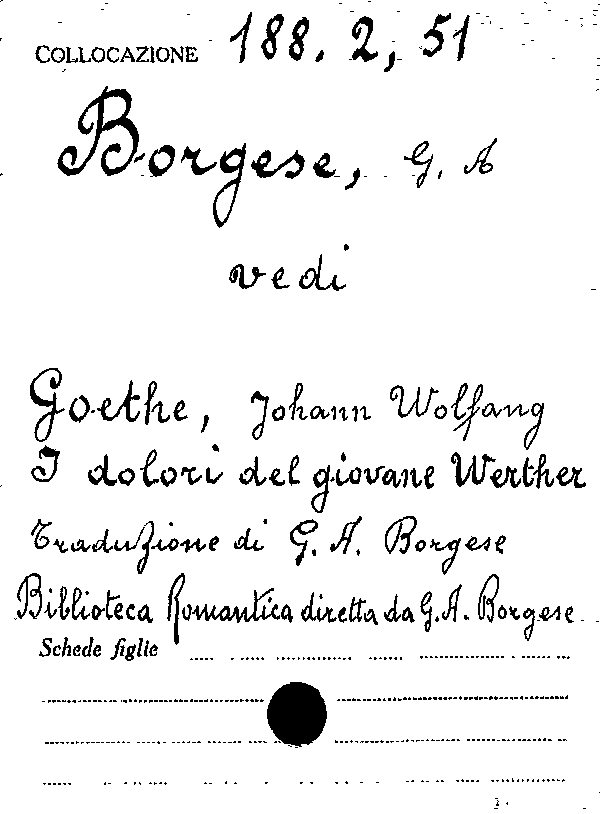 COLLOCAZIONE 188. 2, 51
Borgese, G. A
vedi
Goethe, Johann Wolfang
I dolori del giovane Werther
Traduzione di G. A. Borgese
Biblioteca Romantica diretta da G. A. Borgese
Schede figlie